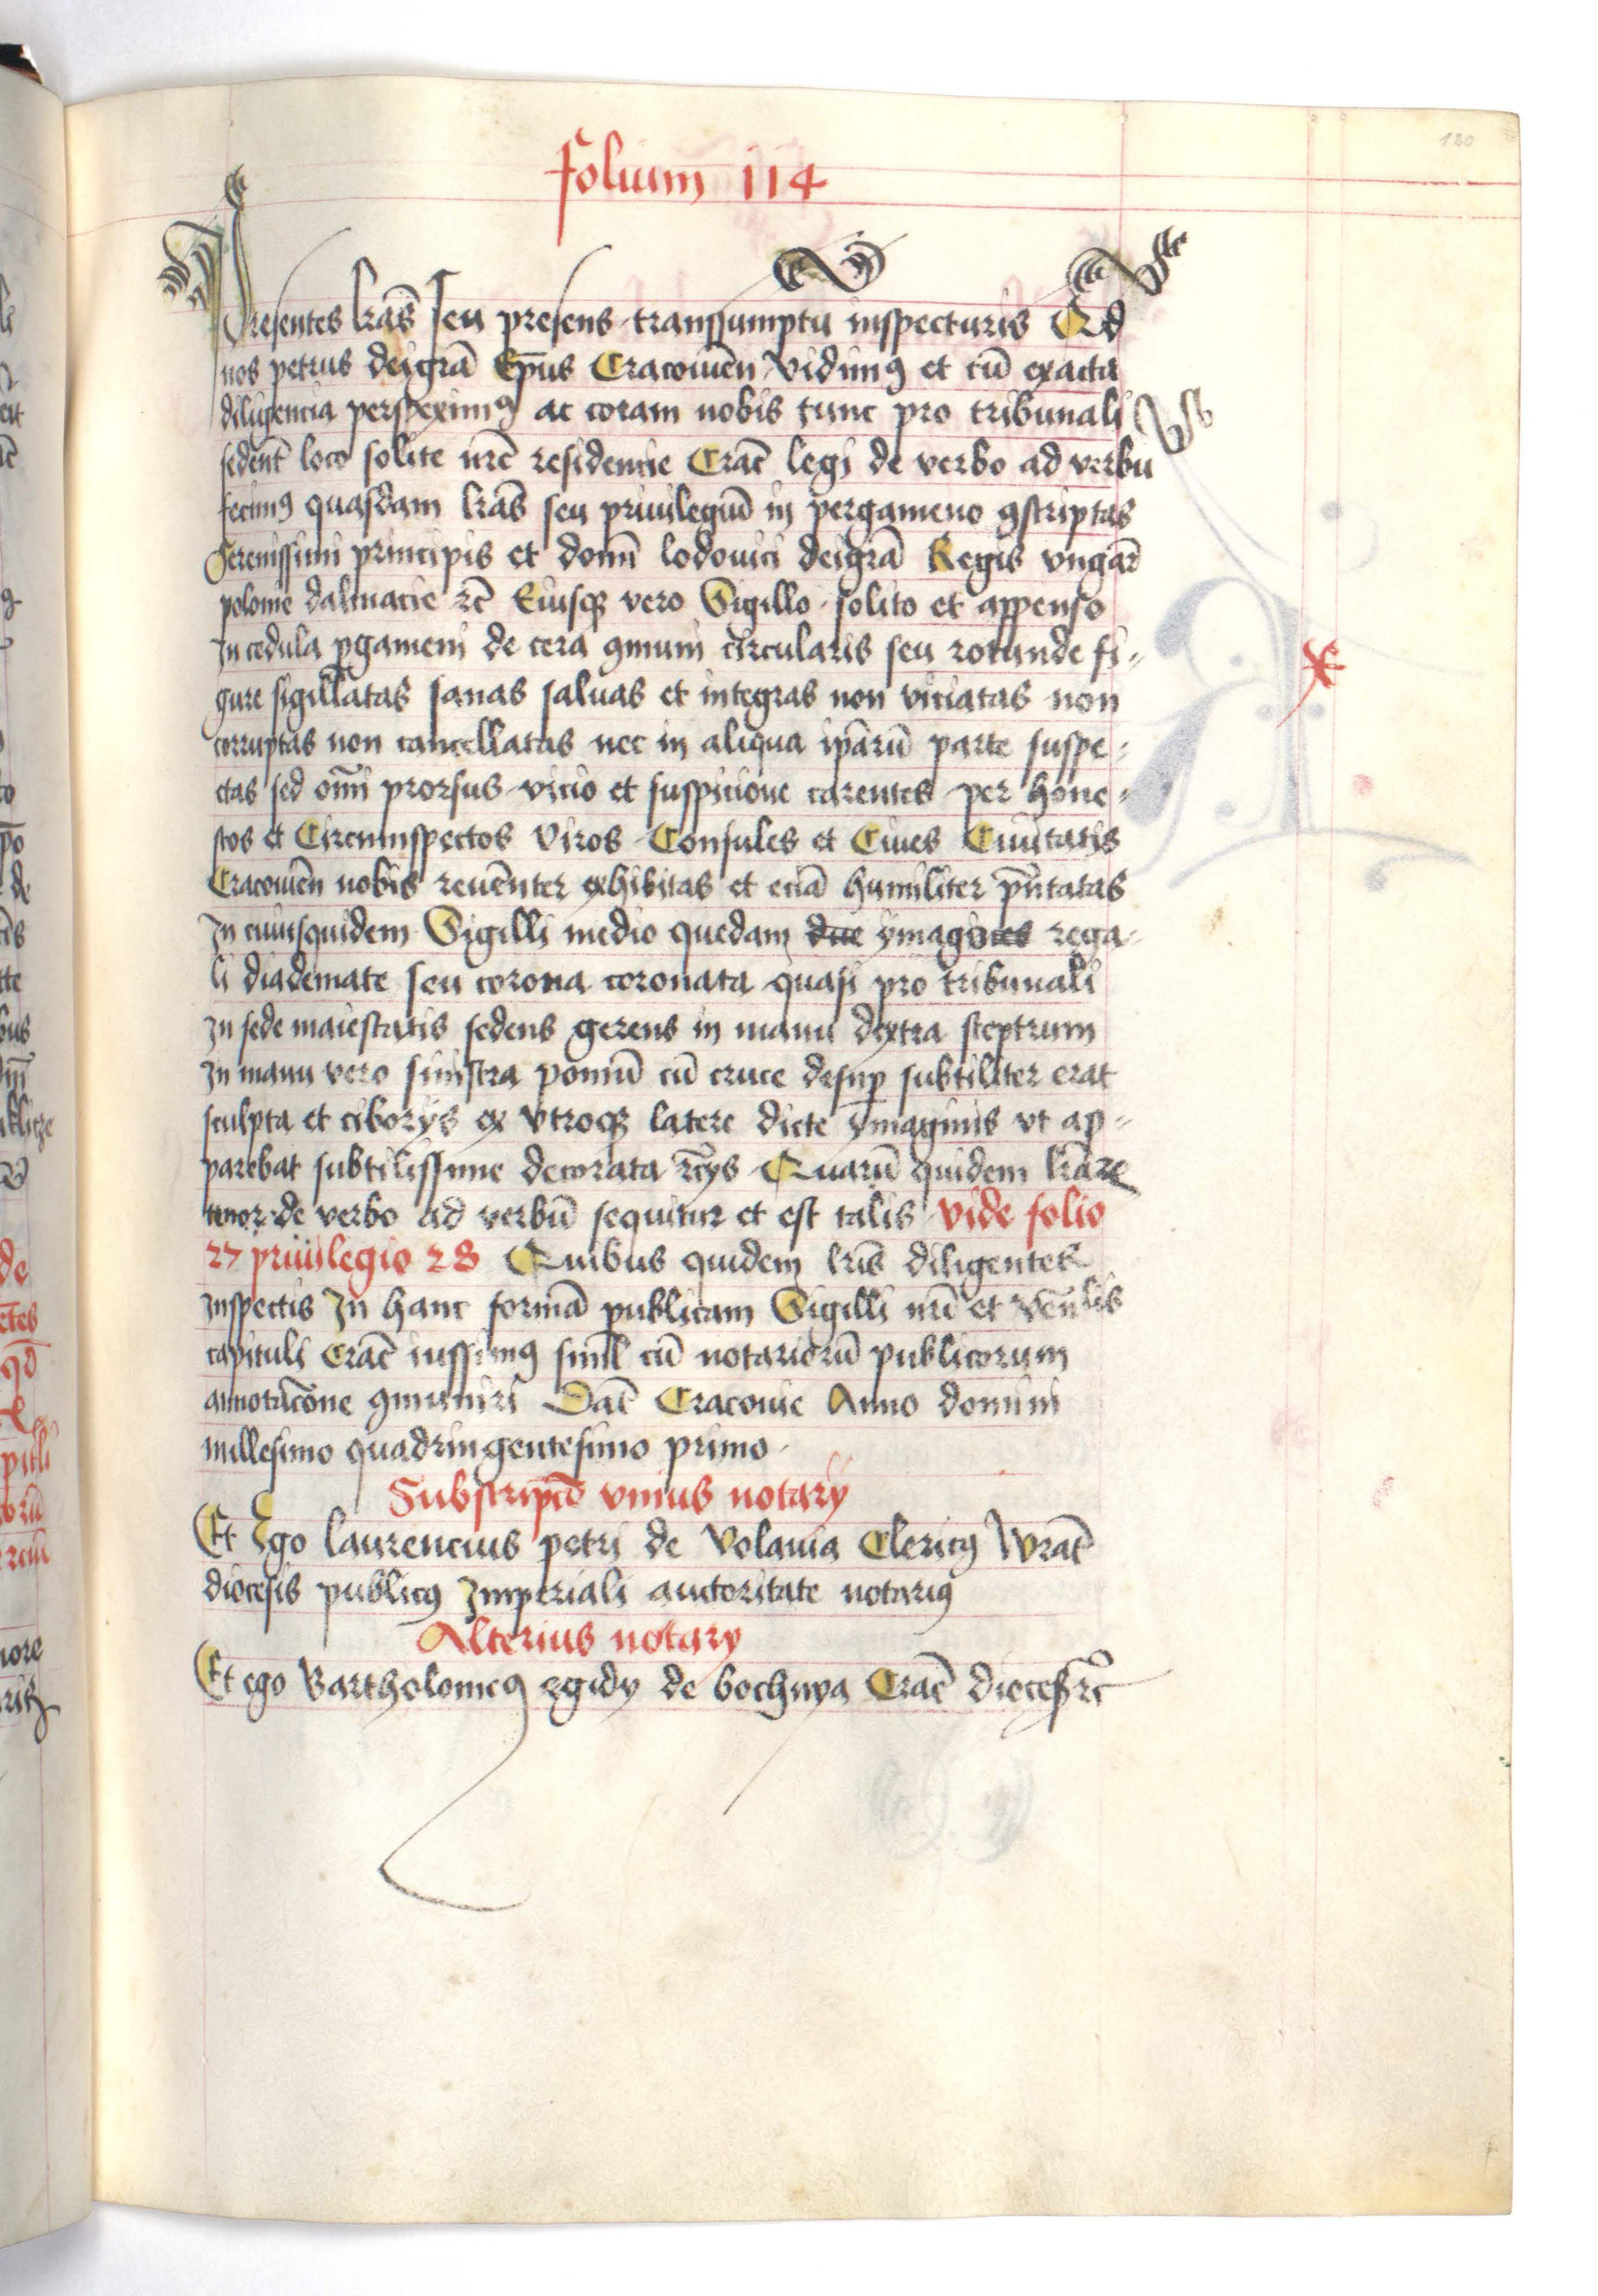 folium 114
180
Presentes lrãs seu presens transsumptu inspecturis Qd
nos petrus deigrã Epũs Cracouieñ vidimꝰ et cũ exacta
diligencia perspeximꝰ ac coram nobis tunc pro tribunali
sedent̃ loco solite nrẽ residencie Crac̃ legi de verbo ad verbũ
fecimꝰ quasdam lrãs seu priuilegiũ in pergameno ꝯscriptas
Serenissimi principis et domĩ lodouici deigrã Regis vngar̃
polonie dalmacie rc̃ Eiusqꝫ vero Sigillo solito et appenso
In cedula ꝑgameni de cera ꝯmuni circularis seu rotunde fi-
gure sigillatas sanas saluas et integras non viciatas non
corruptas non cancellatas nec in aliqua ipãrũ parte suspe-
ctas sed om̃i prorsus vicio et suspicione carentes per hone-
stos et Circumspectos Viros Consules et Ciues Ciuitatis
Cracouieñ nobis reuẽnter exhibitas et eciã humiliter pñtatas
In cuiusquidem Sigilli medio quedam due ymagines rega-
li diademate seu corona coronata quasi pro tribunali
In sede maiestatis sedens gerens in manu dextra sceptrum
In manu vero sinistra pomũ cũ cruce desuꝑ subtiliter erat
sculpta et ciborijs ex vtroqꝫ latere dicte ymaginis vt ap-
parebat subtilissime decorata rc̃ys Quarũ quidem lrãrꝫ
tenor de verbo ad verbũ sequitur et est talis vide folio
27 priuilegio 28 Quibus quidem lrĩs diligenter
Inspectis In hanc formã publicam Sigilli nrĩ et veñlis
capituli Crac̃ iussimꝰ simĩl cũ notariorũ publicorum
annotacõne ꝯmuniri Dat̃ Cracouie Anno domini
millesimo quadringentesimo primo
Subscripcõ vnius notarij
Et Ego laurencius petri de Volauia Clericꝰ Wrat̃
diocesis publicꝰ Imperiali auctoritate notariꝰ
Alterius notarij
Et ego Bartholomeꝰ egidy de bochnya Crac̃ dioces̃ rc̃